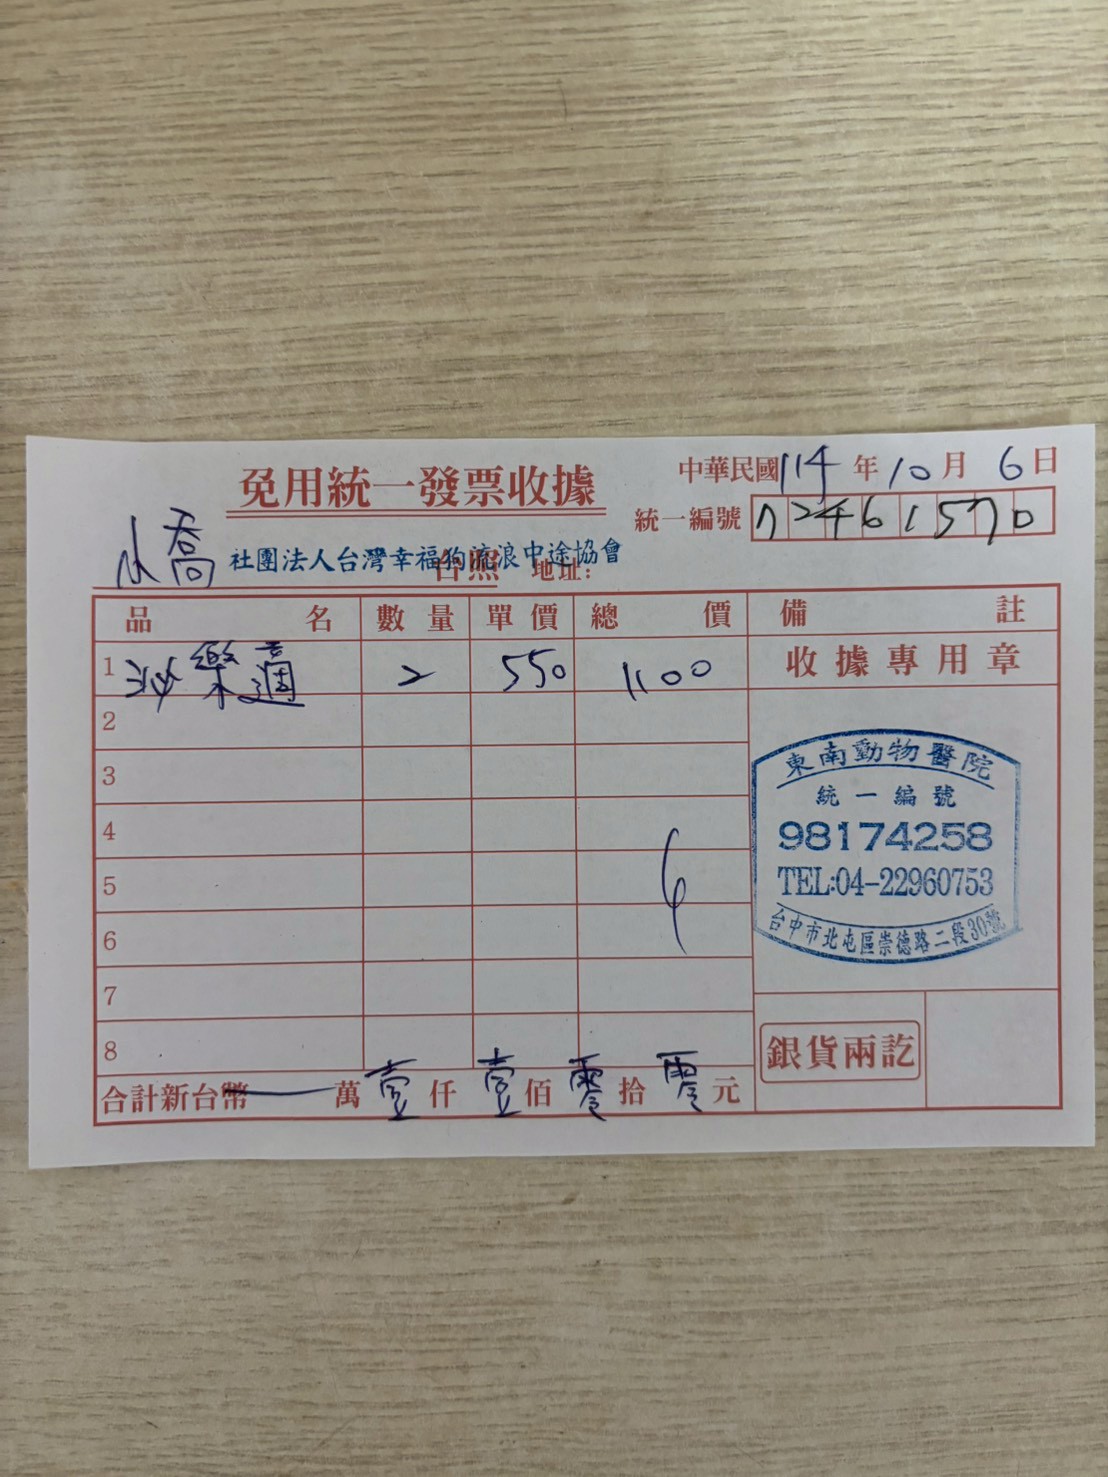 免用統一發票收據
中華民國114年10月6日
統一編號 72461570
小喬 社團法人台灣幸福狗流浪中途協會 台照 地址：
品名 數量 單價 總價 備註
1 泌樂適 2 550 1100 收據專用章
2
3
4
5
6
7
8
東南動物醫院
統一編號
98174258
TEL:04-22960753
台中市北屯區崇德路二段30號
銀貨兩訖
合計新台幣 萬壹仟壹佰零拾零元